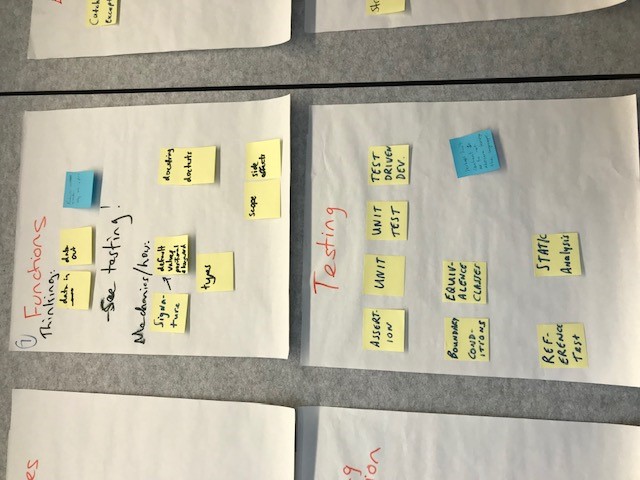 es
7
Functions
Thinking:
data in
data
out
-See testing!
Mechanics/how:
Signa-
ture
default
values
positional
keyword
docstring
doctests
types
scope
side
effects
Catch
except
g
ion
Testing
ASSERT-
ION
UNIT
UNIT
TEST
TEST
DRIVEN
DEV.
BOUNDARY
COND-
ITIONS
EQUIV-
ALENCE
CLASSES
REF-
ERENCE
TEST
STATIC
Analysis